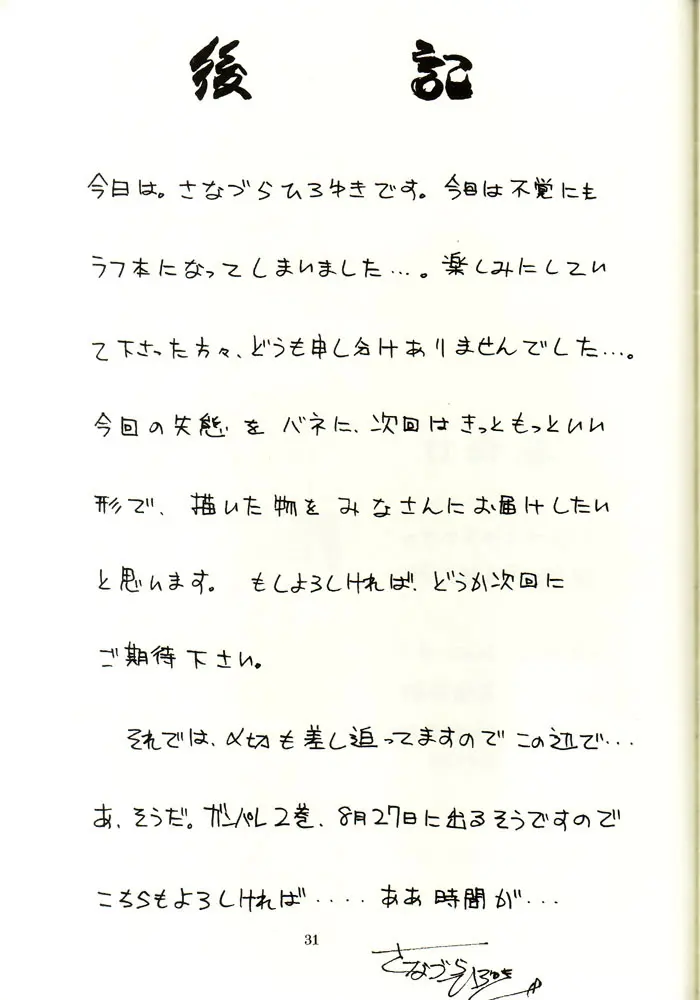 後記
今日は。さなづらひろゆきです。今回は不覚にも
ラフ本になってしまいました…。楽しみにしてい
て下さった方々、どうも申し分けありませんでした…。
今回の失態をバネに、次回はきっともっといい
形で、描いた物をみなさんにお届けしたい
と思います。 もしよろしければ、どうか次回に
ご期待下さい。
それでは、〆切も差し迫ってますのでこの辺で…
あ、そうだ。ガンパレ2巻、8月27日に出るそうですので
こちらもよろしければ‥‥ああ時間が…
31
さなづらひろゆき